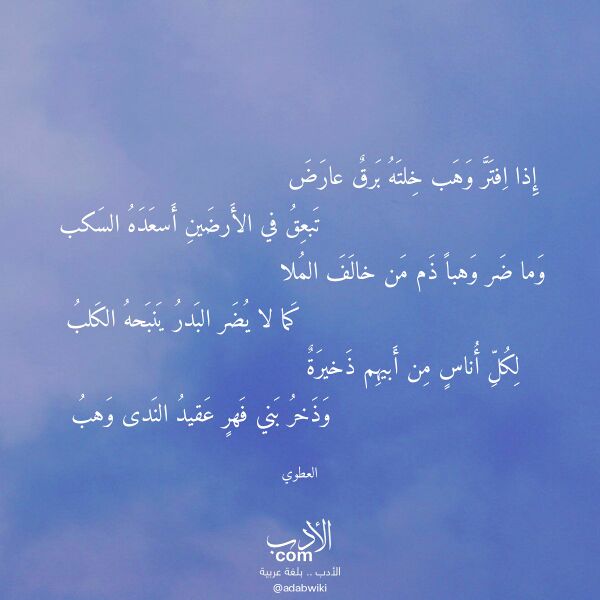 إِذا اِفتَرَّ وَهَب خِلتَهُ بَرقٌ عارَضَ
تَبعِقُ في الأَرضَينِ أَسعَدَهُ السَكب
وَما ضَر وَهباً ذَم مَن خالَفَ المُلا
كَما لا يُضَر البَدرُ يَنبَحهُ الكَلبُ
لِكُلِّ أُناسٍ مِن أَبيهِم ذَخيرَةٌ
وَذَخرُ بَني فَهرٍ عَقيدُ النَدى وَهبُ
العطوي
الأدب
com
الأدب .. بلغة عربية
@adabwiki